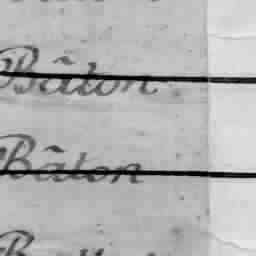 Bâton
Bâton